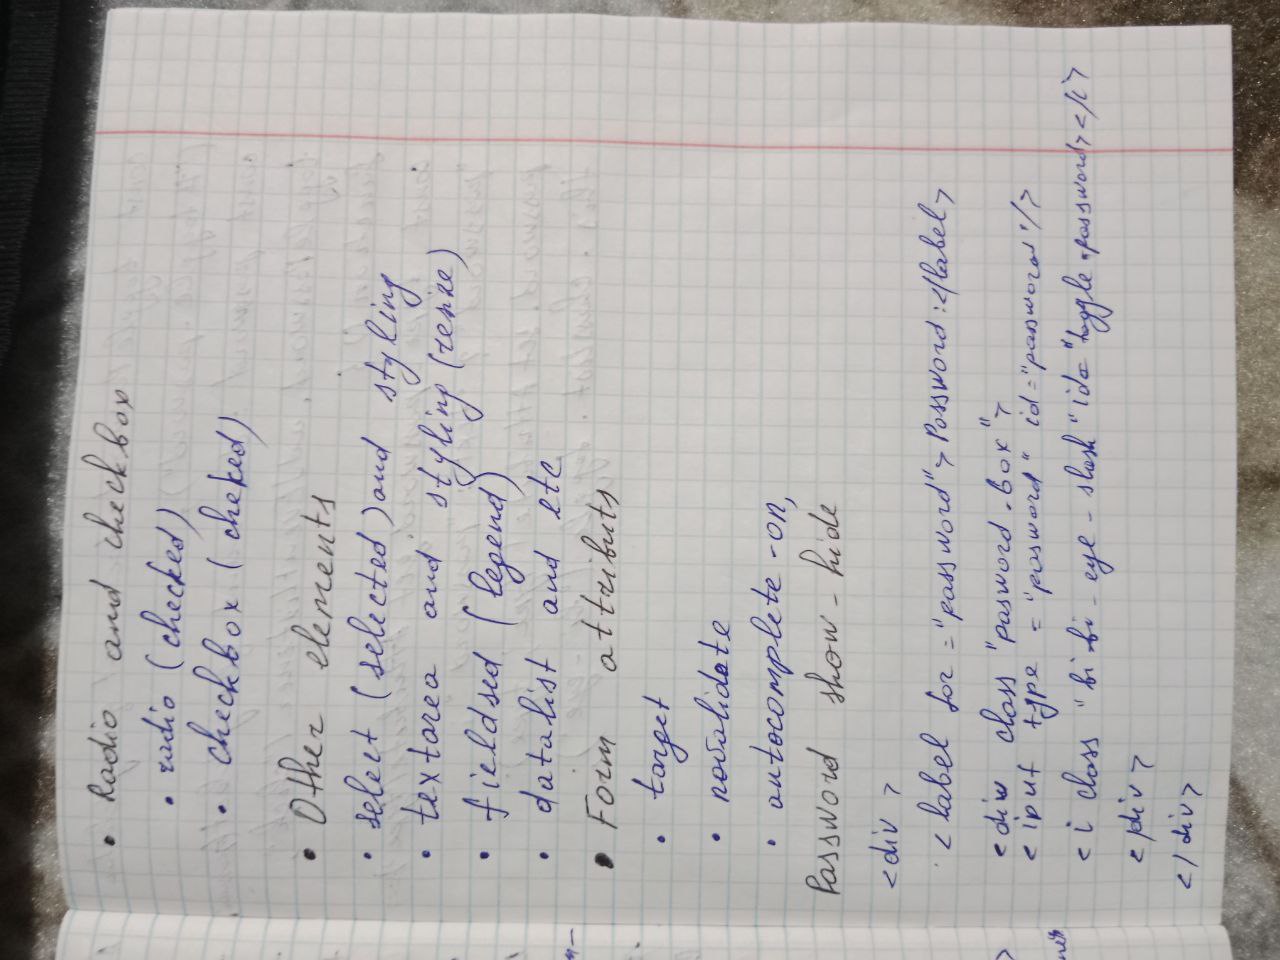 • Radio and checkbox
• radio (checked)
• checkbox (cheked)
• Other elements
• select (selected) and styling
• textarea and styling (resize)
• fieldsed (legend)
• datalist and etc
• Form attributs
• target
• novalidate
• autocomplete - on,
Password show - hide
<div>
<label for = "password"> Password:</label>
<div class "pasword.box">
<iput type = "pasword" id = "password"/>
<i class "bi bi - eye - slash" id = "toggle password"></i>
</div>
</div>